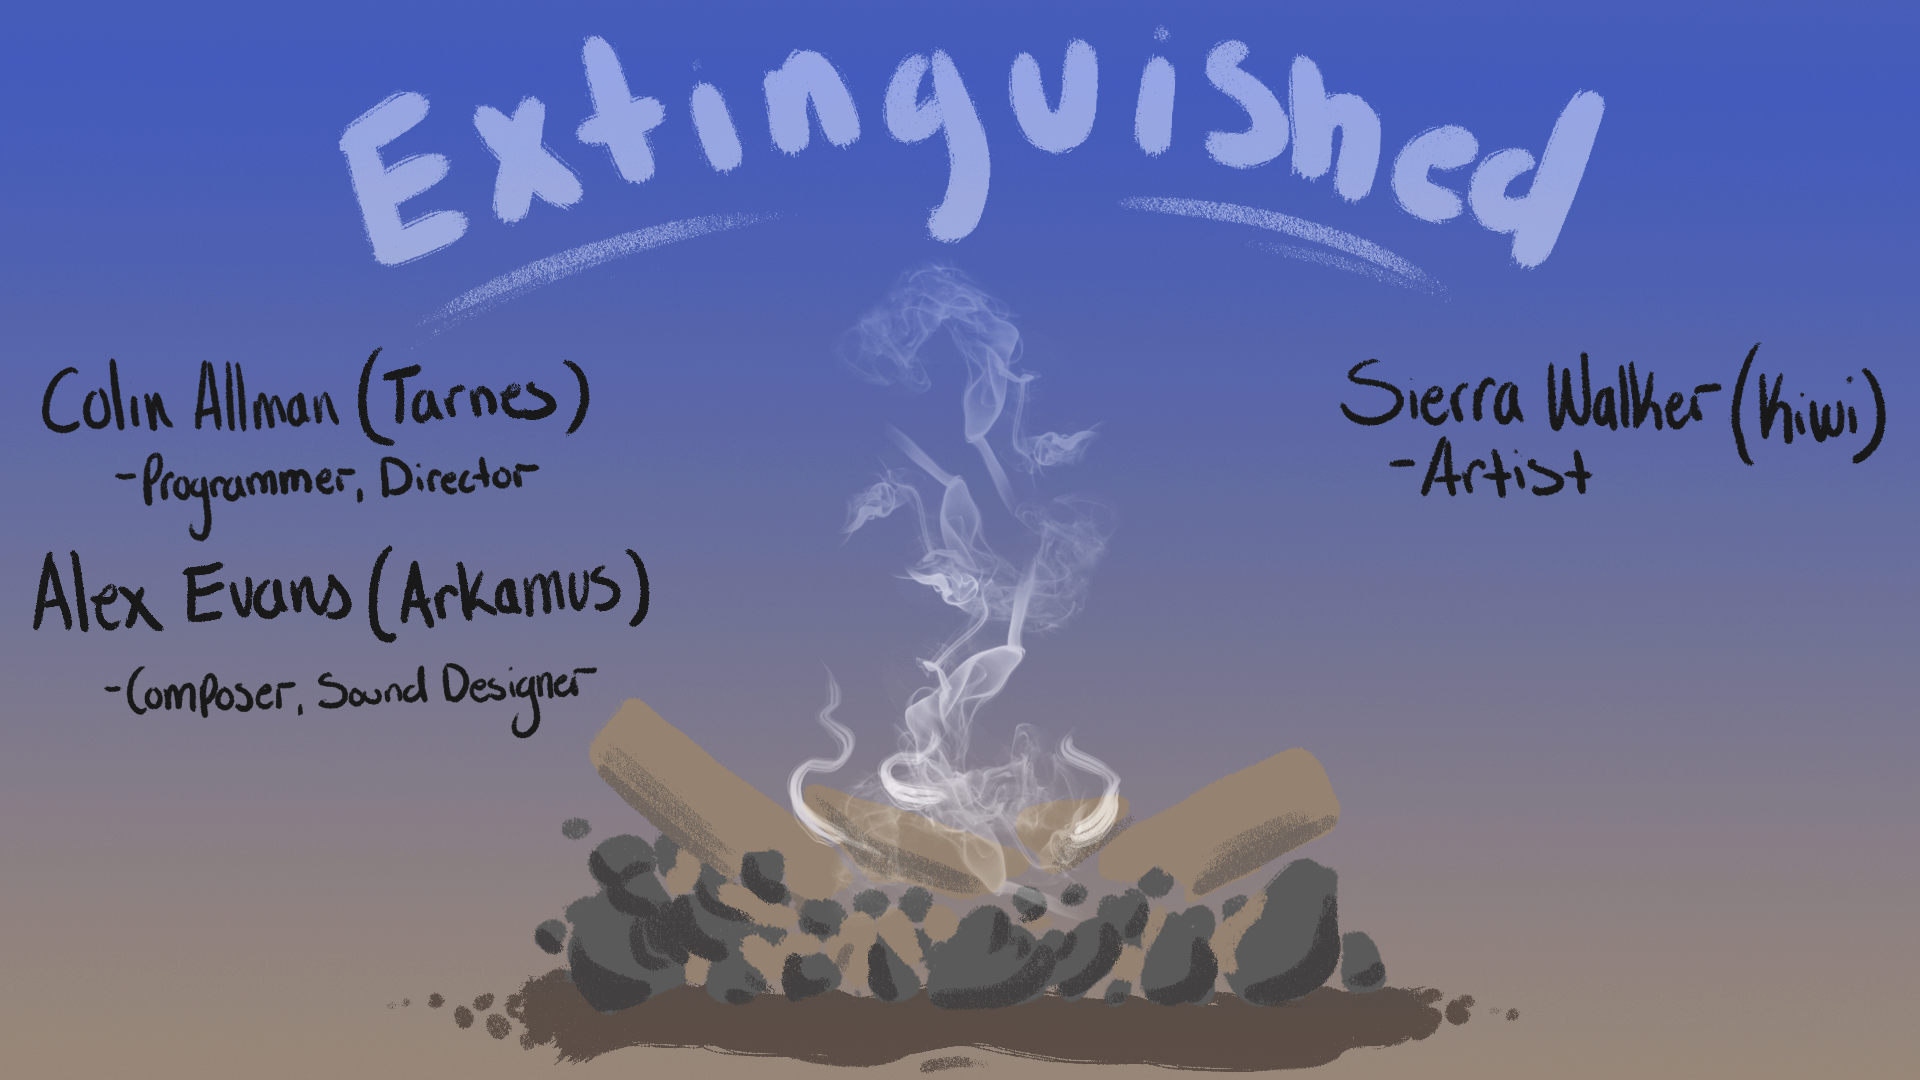 Extinguished
Colin Allman (Tarnes)
-Programmer, Director
Alex Evans (Arkamus)
-Composer, Sound Designer
Sierra Walker (Kiwi)
-Artist